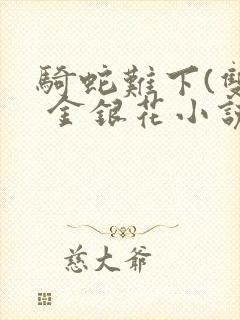 騎蛇難下(雙
金銀花小說
慈大爺